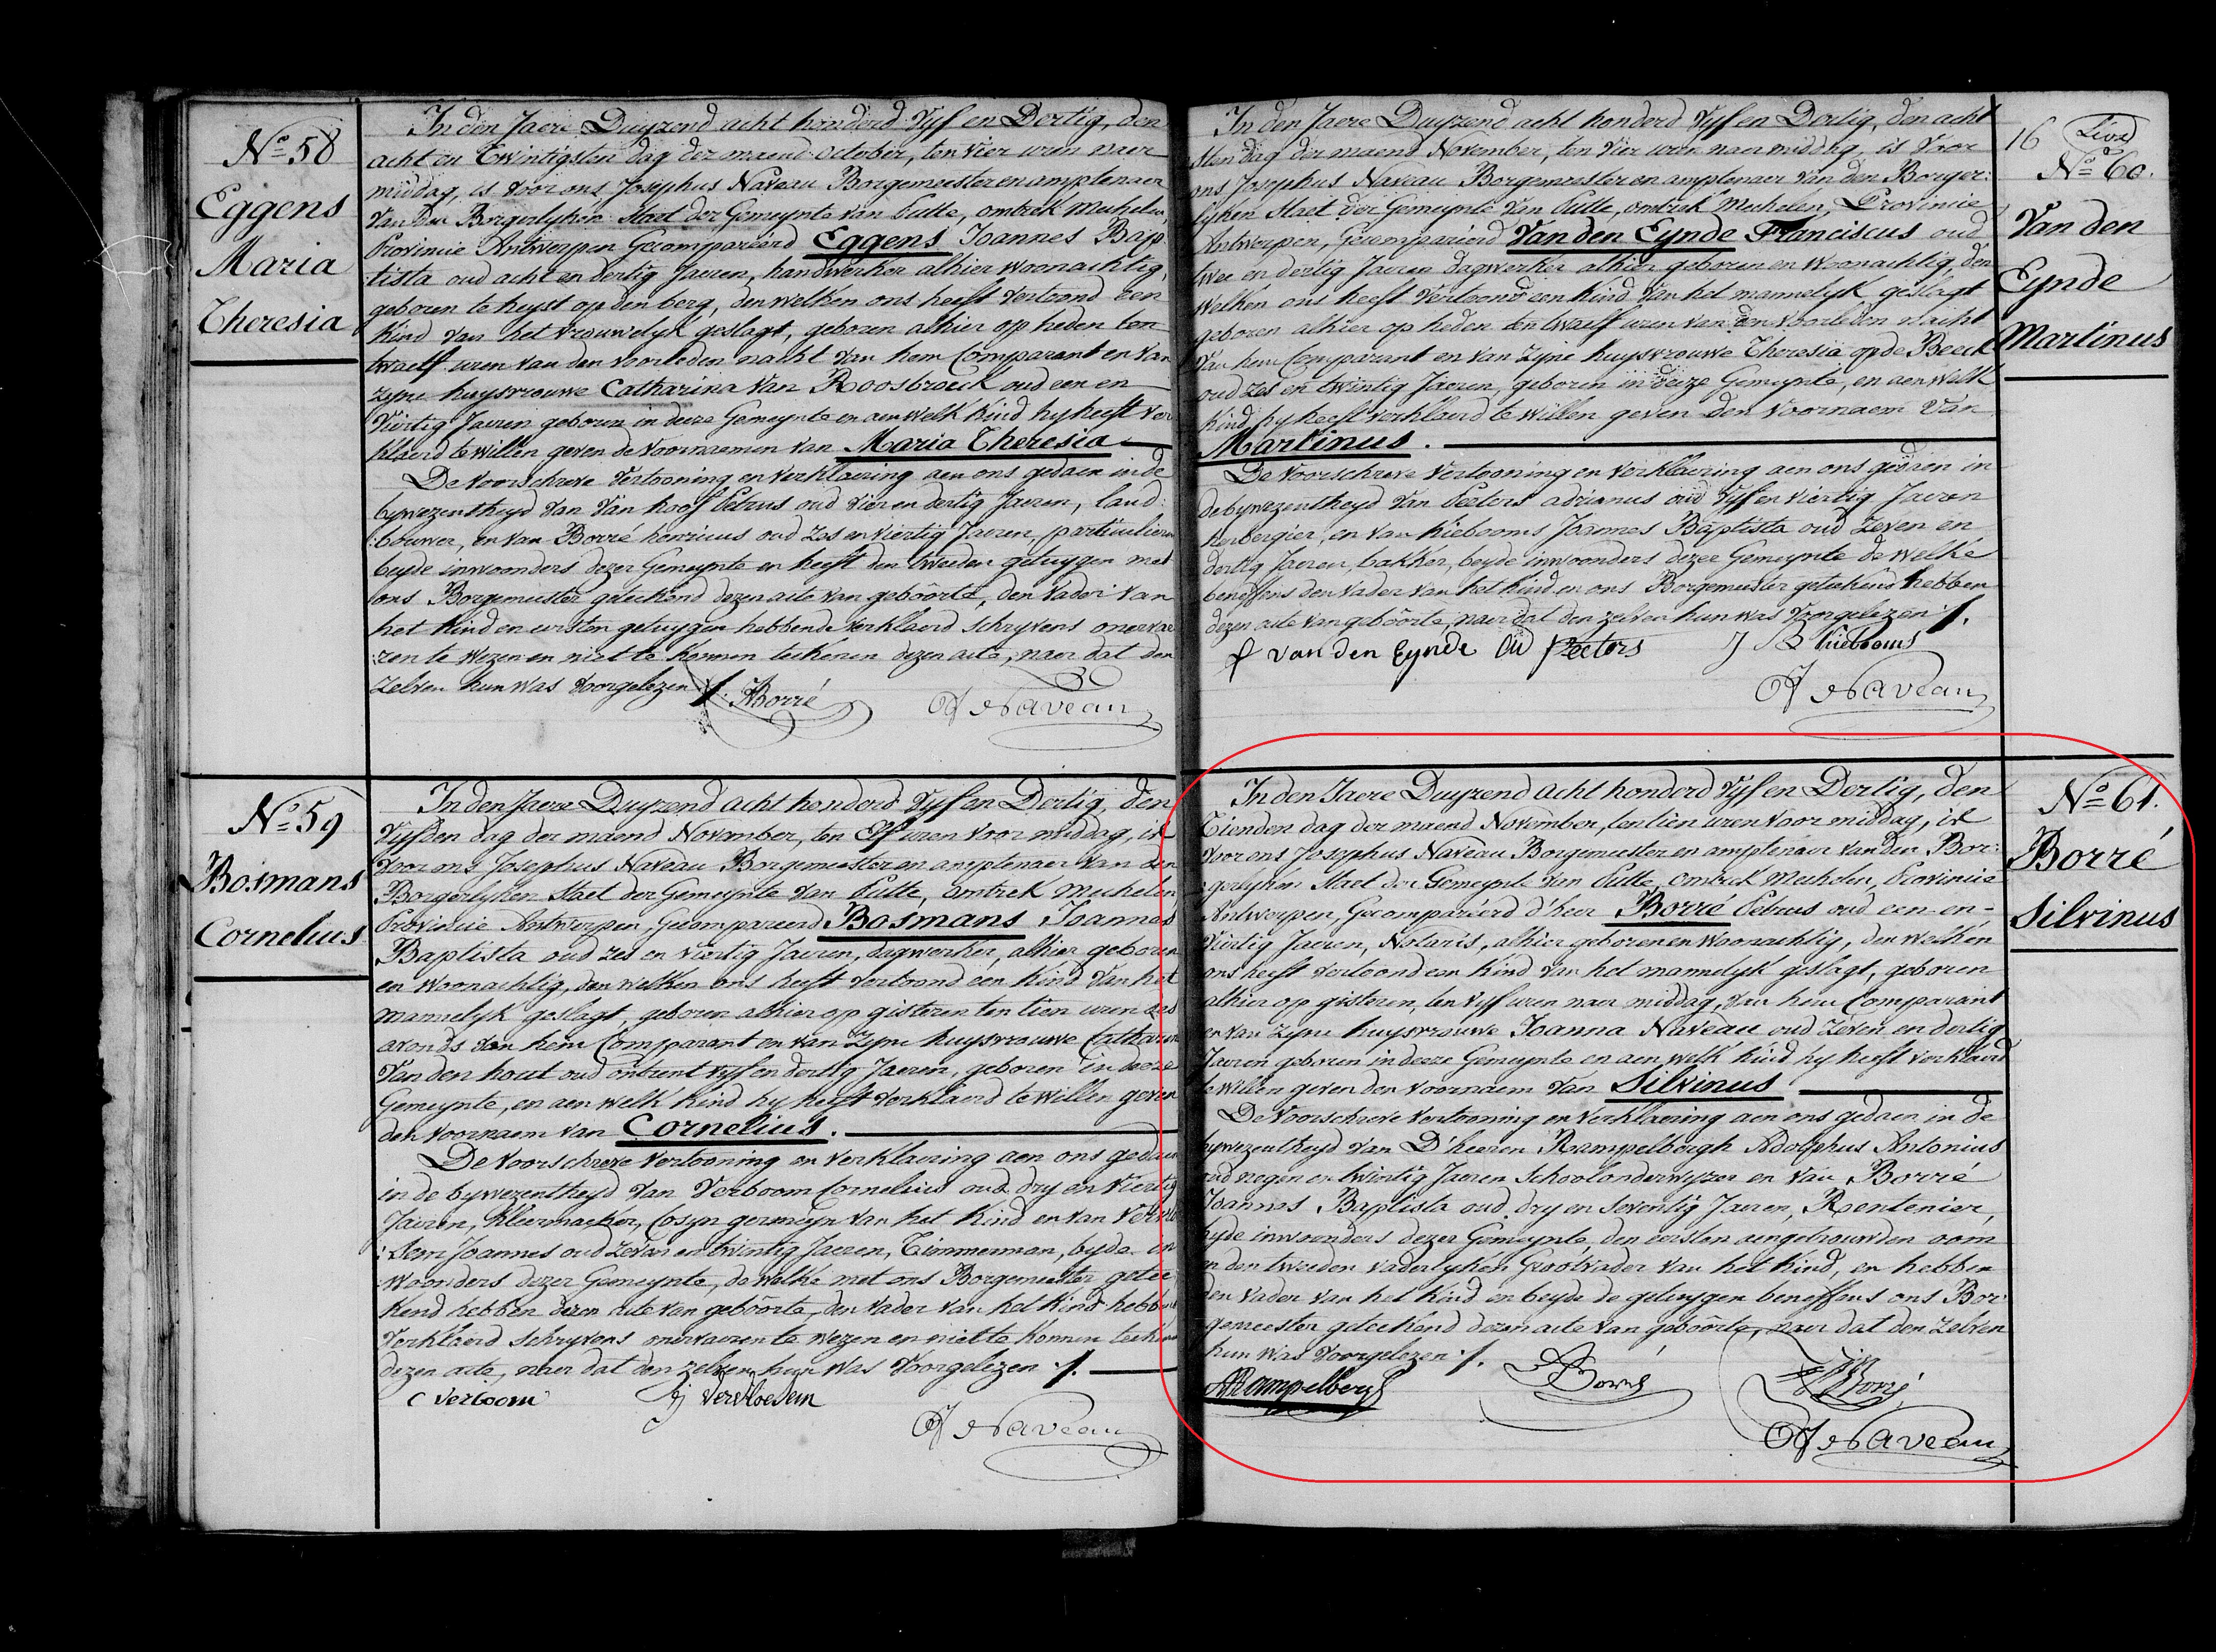 Nº 58
Eggens
Maria
Theresia
In den Jaere Duyzend acht honderd Vyf en Dertig, den
acht en Twintigsten dag der maend October, ten vier uren naer
middag, is voor ons Josephus Naveau Borgemeester en amptenaer
Van den Borgerlyken Staet der Gemeynte van Putte, omtrek Mechelen,
Provincie Antwerpen Gecompareerd Eggens Joannes Bap
tista oud acht en dertig Jaeren, handwerker alhier woonachtig,
geboren te heyst op den berg, den welken ons heeft vertoond een
Kind van het vrouwelyk geslagt, geboren alhier op heden ten
twaelf uren van den voorleden nacht van hem Comparant en van
zyne huysvrouwe Catharina Van Roosbroeck oud een en
Viertig Jaeren geboren in deeze Gemeynte en aen welk Kind hy heeft ver
klaerd te willen geven de voornaemen van Maria Theresia
De voorschreve Vertooning en Verklaering aen ons gedaen in de
bywezentheyd van Van hoof Petrus oud vier en dertig Jaeren, land:
:bouwer, en van Borré henricus oud Zes en Viertig Jaeren, particulier
beyde inwoonders dezer Gemeynte en heeft den tweeden getuygen met
ons Borgemeester geteekend dezen acte van gebôorte, den Vader van
het Kind en eersten getuygen hebbende verklaerd schryvens onervae
:ren te wezen en niet te konnen teekenen dezen acte, naer dat den
Zelven hun was voorgelezen ./.
HBorré
J Naveau
Nº 59
Bosmans
Cornelius
In den Jaere Duyzend acht honderd Vyf en Dertig, den
Vyfden dag der maend November, ten Elf uren voor middag, is
Voor ons Josephus Naveau Borgemeester en amptenaer van den
Borgerlyken Staet der Gemeynte van Putte, omtrek Mechelen
Provincie Antwerpen, Gecompareerd Bosmans Joannes
Baptista oud zes en viertig Jaeren, dagwerker, alhier geboren
en Woonachtig, den welken ons heeft vertoond een Kind van het
mannelyk geslagt, geboren alhier op gisteren ten tien uren des
avonds van hem Comparant en van Zyne huysvrouwe Catharina
Van den hout oud ontrent vyf en dertig Jaeren, geboren in deeze
Gemeynte, en aen welk Kind hy heeft verklaerd te willen geven
den voornaem van Cornelius.
De Voorschreve vertooning en Verklaering aen ons gedaen
in de bywezentheyd van Verboom Cornelius oud dry en Viertig
Jaeren, Kleermaeker, Cosyn germeyn van het Kind en van Vervloe
:sem Joannes oud Zeven en twintig Jaeren, Timmerman, beyde in
woonders dezer Gemeynte, de welke met ons Borgemeester getee
kend hebben dezen acte van gebôorte, den Vader van het Kind hebbende
Verklaerd schryvens onervaeren te wezen en niet te konnen teekenen
dezen acte, naer dat den zelven hun was Voorgelezen ./.
C Verboom J Vervloesem
J Naveau
16
Nº 60.
Van den
Eynde
Martinus
In den Jaere Duyzend acht honderd Vyf en Dertig, den acht
sten dag der maend November, ten vier uren naer middag, is Voor
ons Josephus Naveau Borgemeester en amptenaer Van den Borger:
lyken Staet der Gemeynte Van Putte, omtrek Mechelen, Provincie
Antwerpen, Gecompareerd Van den Eynde Franciscus oud
twee en dertig Jaeren dagwerker alhier geboren en woonachtig, den
welken ons heeft vertoond een Kind van het mannelyk geslagt
geboren alhier op heden ten twaelf uren van den voorleden nacht
Van hem Comparant en van Zyne huysvrouwe Theresia op de Beeck
oud zes en twintig Jaeren, geboren in deeze Gemeynte, en aen welk
Kind hy heeft verklaerd te willen geven den Voornaem Van
Martinus.
De Voorschreve Vertooning en Verklaering aen ons gedaen in
de bywezentheyd Van Peeters adrianus oud Vyf en Viertig Jaeren
herbergier, en van hiebooms Joannes Baptista oud Zeven en
dertig Jaeren, bakker, beyde inwoonders dezer Gemeynte de welke
beneffens den vader van het Kind en ons Borgemeester geteekend hebben
dezen acte van gebôorte, naer dat den zelven hun was Voorgelezen ./.
f van den Eynde Ad Peeters J B hiebooms
J Naveau
Nº 61.
Borré
Silvinus
In den Jaere Duyzend Acht honderd Vyf en Dertig, den
Tienden dag der maend November, ten tien uren voor middag, is
Voor ons Josephus Naveau Borgemeester en amptenaer van den Bor:
gerlyken Staet der Gemeynte van Putte, omtrek Mechelen, Provincie
Antwerpen, Gecompareerd d'heer Borré Petrus oud een en
Viertig Jaeren, Notaris, alhier geboren en woonachtig, den welken
ons heeft vertoond een Kind van het mannelyk geslagt, geboren
alhier op gisteren, ten vyf uren naer middag, van hem Comparant
en van Zyne huysvrouwe Joanna Naveau oud Zeven en dertig
Jaeren geboren in deeze Gemeynte en aen welk kind hy heeft verklaerd
te willen geven den voornaem van Silvinus
De Voorschreve Vertooning en Verklaering aen ons gedaen in de
bywezentheyd van D'heeren Rampelbergh Adolphus Antonius
oud negen en twintig Jaeren Schoolonderwyzer en van Borré
Joannes Baptista oud dry en seventig Jaeren, Rentenier,
beyde inwoonders dezer Gemeynte, den eersten aengetrouwden oom
en den tweeden vaderlyken Grootvader van het Kind, en hebben
den vader van het Kind en beyde de getuygen beneffens ons Bor
gemeester geteekend dezen acte van gebôorte, naer dat den Zelven
hun was voorgelezen ./.
ARampelbergh Borré Borré
J Naveau